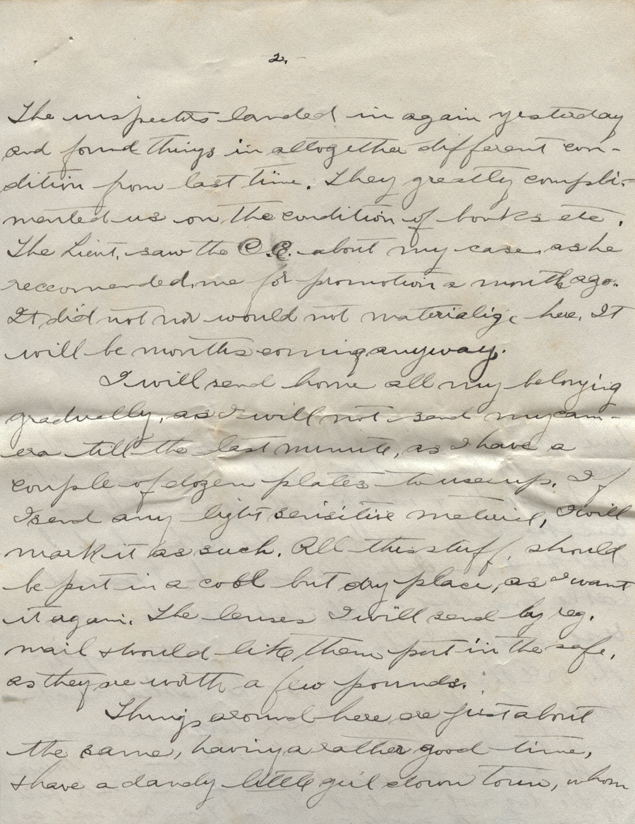 2.
The inspectors landed in again yesterday
and found things in altogether different con-
dition from last time. They greatly compli-
mented us on the condition of books etc.
The Lieut. saw the C.O. about my case, as he
reccomended me for promotion a month ago.
It did not nor would not materialize here. It
will be months coming anyway.
I will send home all my belonging
gradually, as I will not send my cam-
era till the last minute, as I have a
couple of dozen plates to use up. If
I send any light sensitive material, I will
mark it as such. All this stuff, should
be put in a cool but dry place, as I want
it again. The lenses I will send by reg.
mail & would like them put in the safe,
as they are worth a few pounds.
Things around here are just about
the same, having a rather good time,
& have a dandy little girl down town, whom